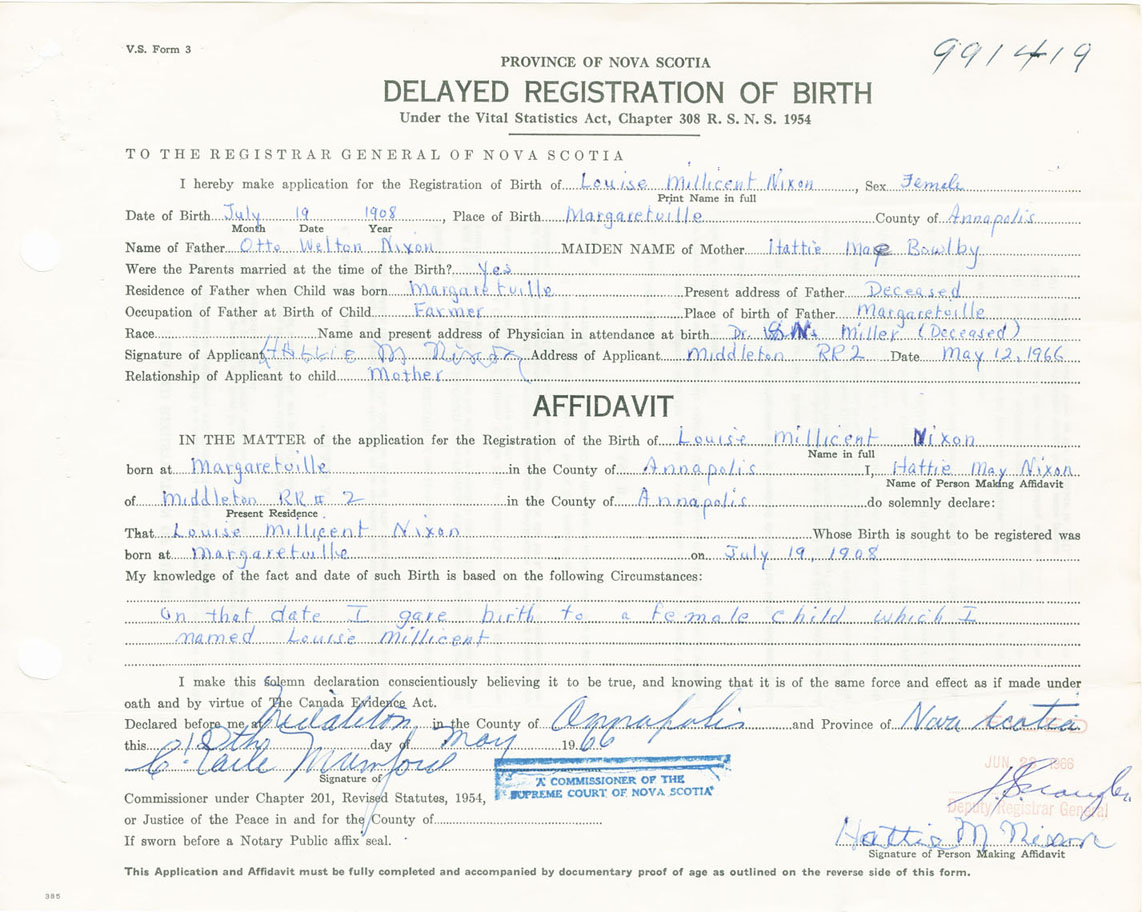 V.S. Form 3
991419
PROVINCE OF NOVA SCOTIA
DELAYED REGISTRATION OF BIRTH
Under the Vital Statistics Act, Chapter 308 R. S. N. S. 1954
TO THE REGISTRAR GENERAL OF NOVA SCOTIA
I hereby make application for the Registration of Birth of Louise Millicent Nixon, Sex Female
Print Name in full
Date of Birth July 19 1908, Place of Birth Margaretville County of Annapolis
Month Date Year
Name of Father Otto Welton Nixon MAIDEN NAME of Mother Hattie Mae Bowlby
Were the Parents married at the time of the Birth? Yes
Residence of Father when Child was born Margaretville Present address of Father Deceased
Occupation of Father at Birth of Child Farmer Place of birth of Father Margaretville
Race Name and present address of Physician in attendance at birth Dr. Miller (Deceased)
Signature of Applicant Hattie M Nixon Address of Applicant Middleton RR2 Date May 12, 1966
Relationship of Applicant to child Mother
AFFIDAVIT
IN THE MATTER of the application for the Registration of the Birth of Louise Millicent Nixon
Name in full
born at Margaretville in the County of Annapolis I, Hattie May Nixon
Name of Person Making Affidavit
of Middleton RR # 2 in the County of Annapolis do solemnly declare:
Present Residence
That Louise Millicent Nixon Whose Birth is sought to be registered was
born at Margaretville on July 19, 1908
My knowledge of the fact and date of such Birth is based on the following Circumstances:
On that date I gave birth to a female child which I
named Louise Millicent
I make this solemn declaration conscientiously believing it to be true, and knowing that it is of the same force and effect as if made under
oath and by virtue of The Canada Evidence Act.
Declared before me at Middleton in the County of Annapolis and Province of Nova Scotia
this 12th day of May 1966
JUN 1966
Mumford
Signature of
A COMMISSIONER OF THE
SUPREME COURT OF NOVA SCOTIA
Commissioner under Chapter 201, Revised Statutes, 1954,
Deputy Registrar General
or Justice of the Peace in and for the County of
Hattie M Nixon
If sworn before a Notary Public affix seal.
Signature of Person Making Affidavit
This Application and Affidavit must be fully completed and accompanied by documentary proof of age as outlined on the reverse side of this form.
385